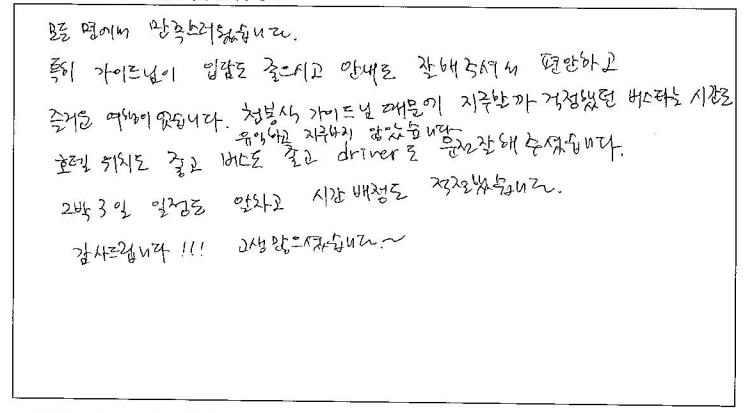 모든 면에서 만족스러웠습니다.
특히 가이드님이 입담도 좋으시고 안내도 잘해주셔서 편안하고
즐거운 여행이 었습니다. 가이드님 때문에 지루할까 걱정했던 버스타는 시간도
유익하고 지루하지 않았습니다
호텔 위치도 좋고 버스도 좋고 driver도 운전 잘해 주셨습니다.
2박 3일 일정도 알차고 시간 배정도 적절했습니다.
감사드립니다!!! 고생많으셨습니다.~